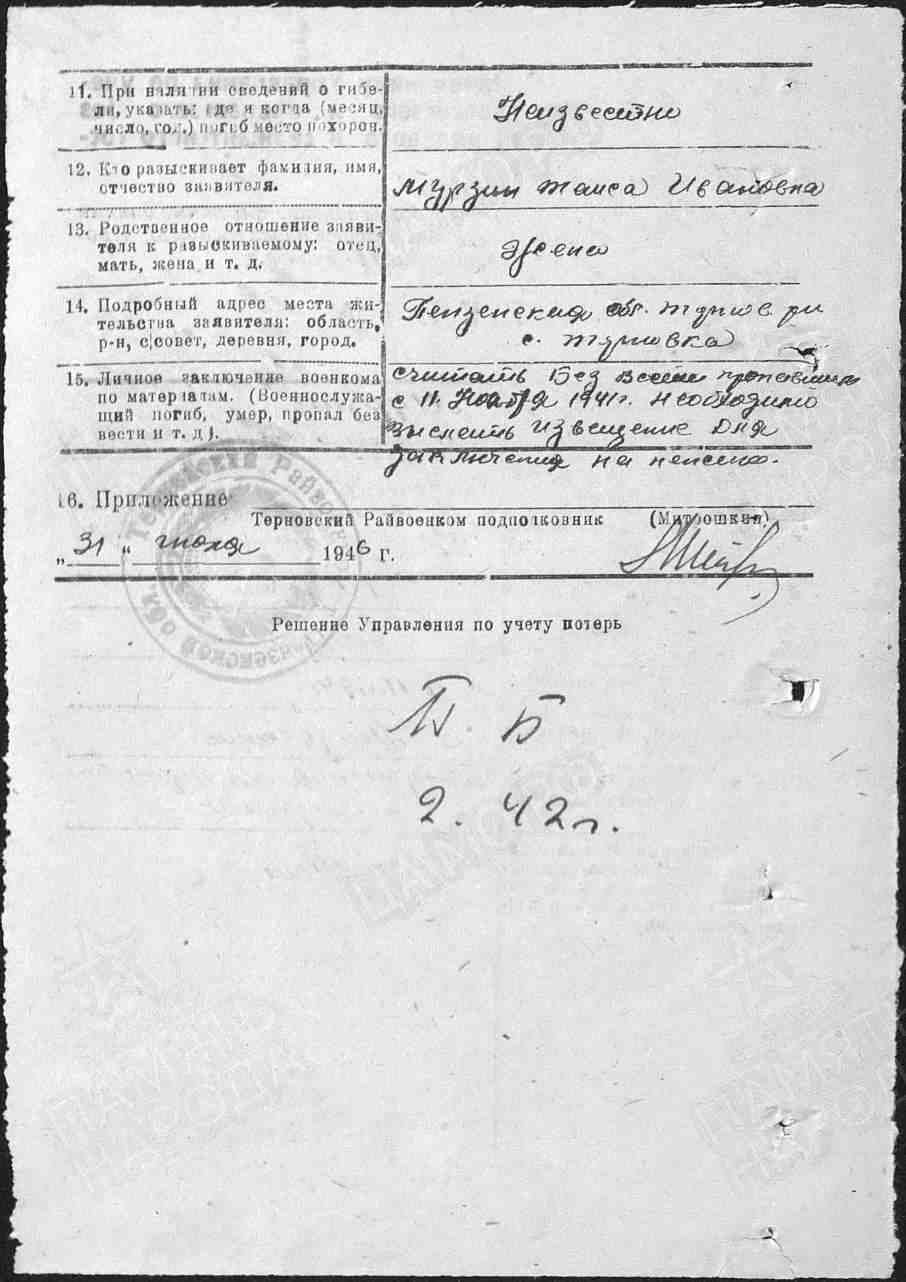 11. При наличии сведений о гибе-
ли, указать: где и когда (месяц,
число, год.) погиб место похорон.
Неизвестно
12. Кто разыскивает фамилия, имя,
отчество заявителя.
Мурзин Таиса Ивановна
13. Родственное отношение заяви-
теля к разыскиваемому: отец,
мать, жена и т. д.
Жена
14. Подробный адрес места жи-
тельства заявителя: область,
р-н, с|совет, деревня, город.
Пензенская обл.
с.
15. Личное заключение военкома
по материалам. (Военнослужа-
щий погиб, умер, пропал без
вести и т. д).
считать Без вести пропавшим
с 11. Ноября 1941г. Необходимо
выслать извещение Для
заключения на пенсию.
16. Приложение
Терновский Райвоенком подполковник (Митрошкин)
„31" июля 1946 г.
Решение Управления по учету потерь
Б
2. 42г.
ЦАМО
ПАМЯТЬ
НАРОДА